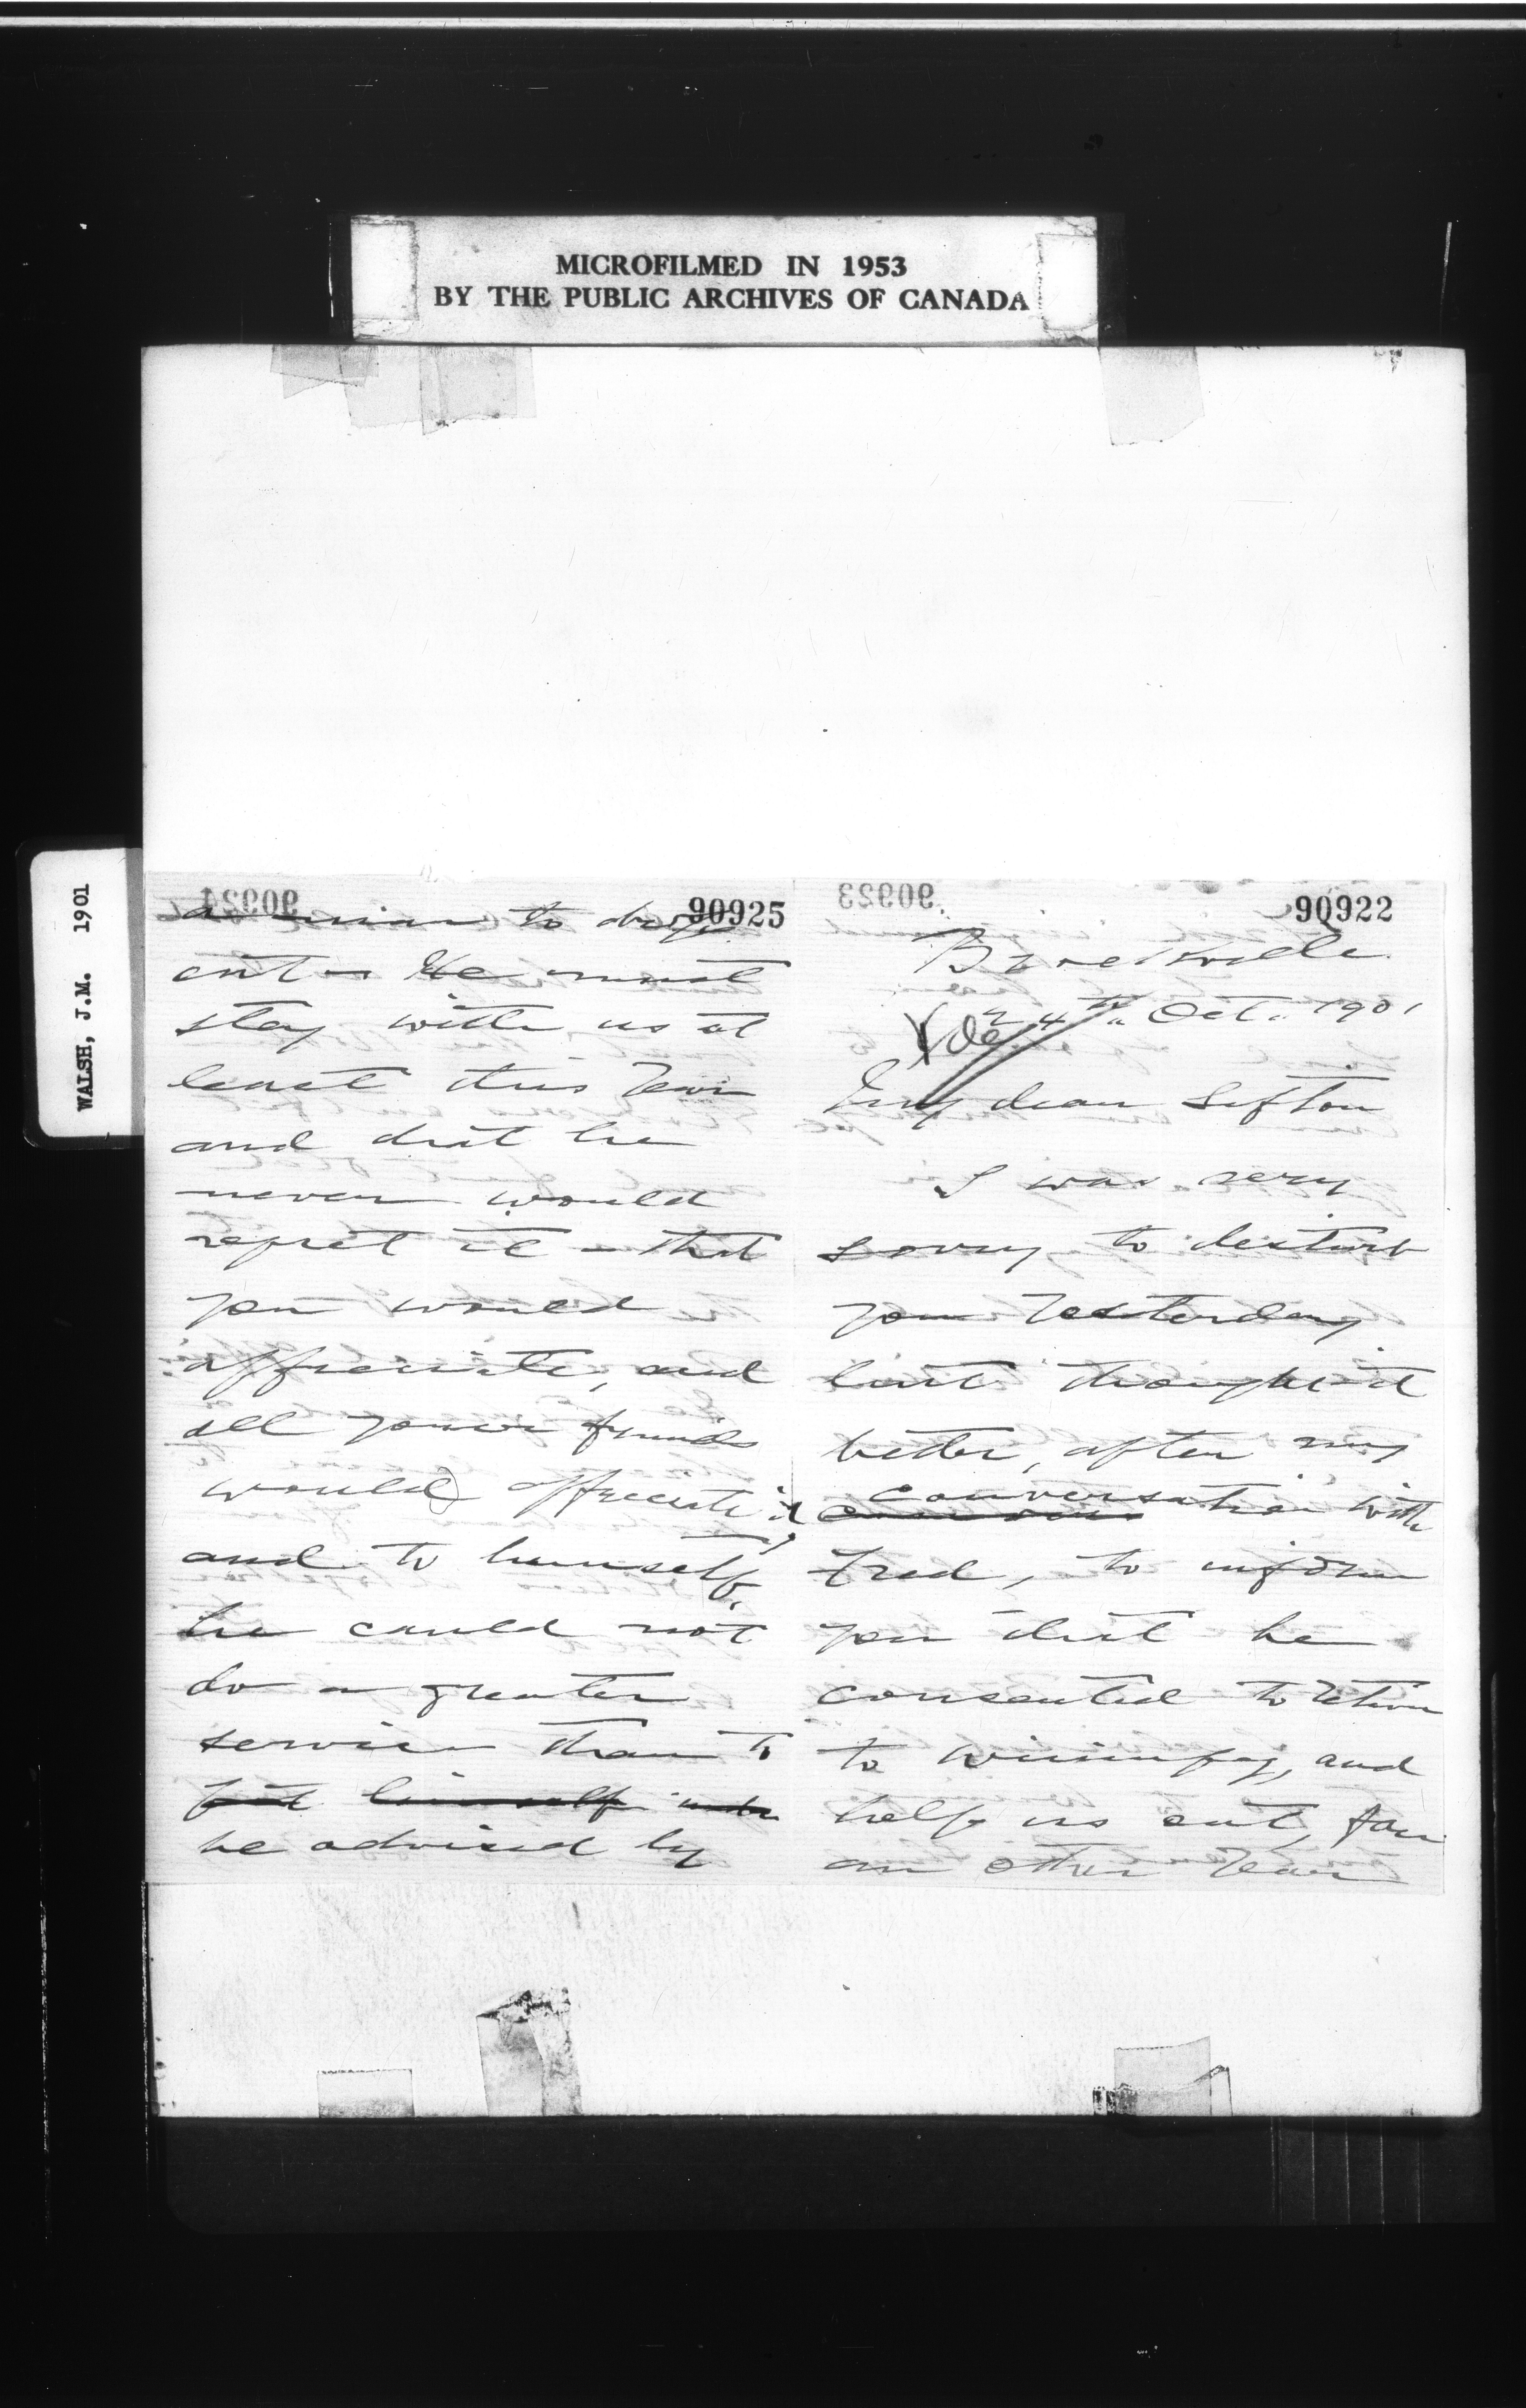 MICROFILMED IN 1953
BY THE PUBLIC ARCHIVES OF CANADA
WALSH, J.M. 1901
90925
a man to drop
out – He must
stay with us at
least this Year
and that he
never would
regret it – that
you would
appreciate, and
all your friends
would appreciate it,
and to himself,
he could not
do a greater
service than to
put himself
be advised by
90922
Brockville
24th Oct. 1901
My dear Sifton
I was very
sorry to disturb
you Yesterday
but thought it
better, after my
conversation with
Fred, to inform
you that he
consented to return
to Winnipeg, and
help us out, for
an other Year